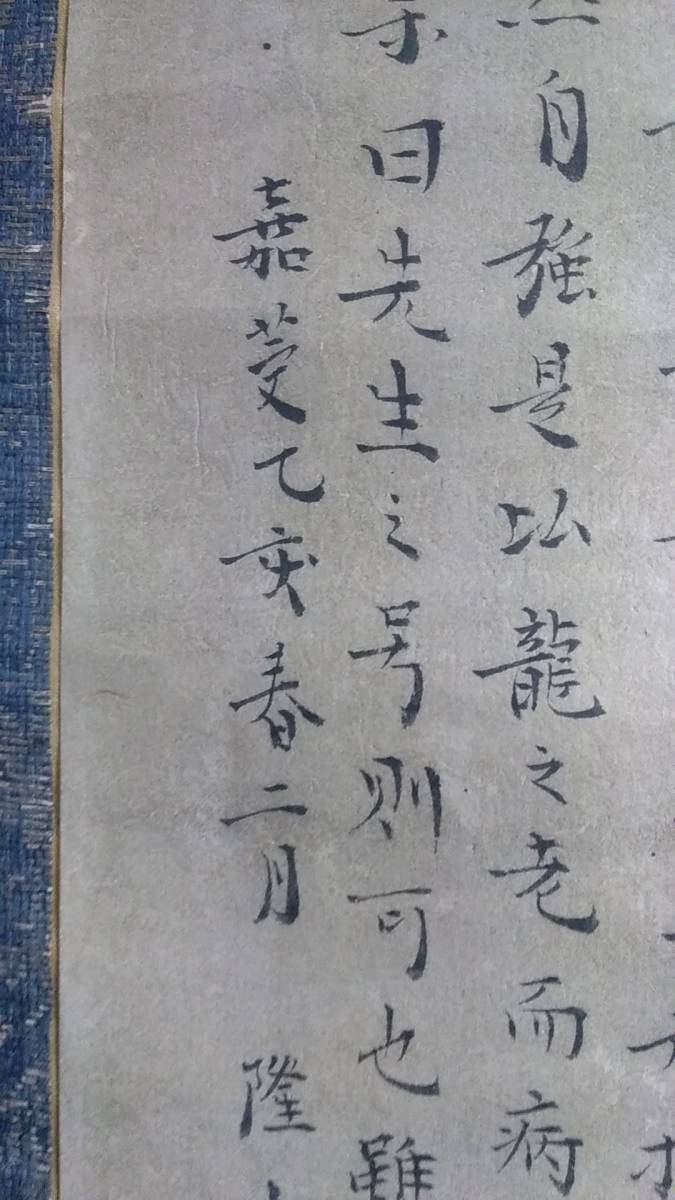 自強是以龍之老而病
曰先生之号則可也雖
嘉慶乙亥春二月 隆